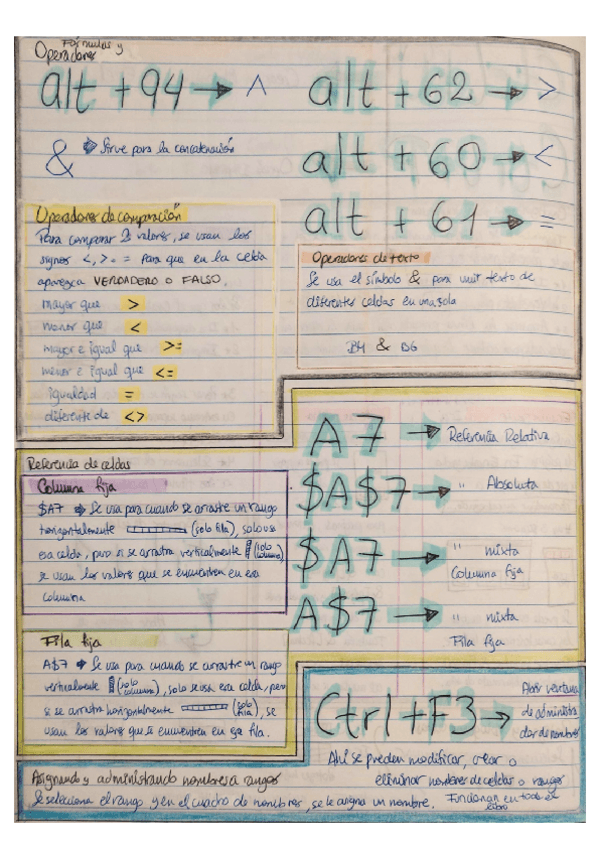 Fórmulas y
Operadores
alt + 94 → ^
& ⇒ Sirve para la concatenación
alt + 62 → >
alt + 60 → <
alt + 61 → =
Operadores de comparación
Para comparar 2 valores, se usan los
signos <, >, = para que en la celda
aparezca VERDADERO O FALSO.
mayor que >
menor que <
mayor e igual que >=
menor e igual que <=
igualdad =
diferente de <>
Operadores de texto
Se usa el símbolo & para unir texto de
diferentes celdas en una sola
B4 & D6
A7 → Referencia Relativa
$A$7 → " Absoluta
$A7 → " mixta
Columna fija
A$7 → " mixta
Fila fija
Referencia de celdas
Columna fija
$A7 ⇒ Se usa para cuando se arrastre un rango
horizontalmente (solo fila), solo usa
esa celda, pero si se arrastra verticalmente (solo columna)
se usan los valores que se encuentren en esa
columna
Fila fija
A$7 ⇒ Se usa para cuando se arrastre un rango
verticalmente (solo columna), solo se usa esa celda, pero
si se arrastra horizontalmente (solo fila), se
usan los valores que se encuentren en esa fila.
Ctrl+F3 → Abrir ventana
de administra
dor de nombres
Ahí se pueden modificar, crear o
eliminar nombres de celdas o rangos
Funcionan en todo el
libro
Asignando y administrando nombres a rangos
Se selecciona el rango y en el cuadro de nombres, se le asigna un nombre.